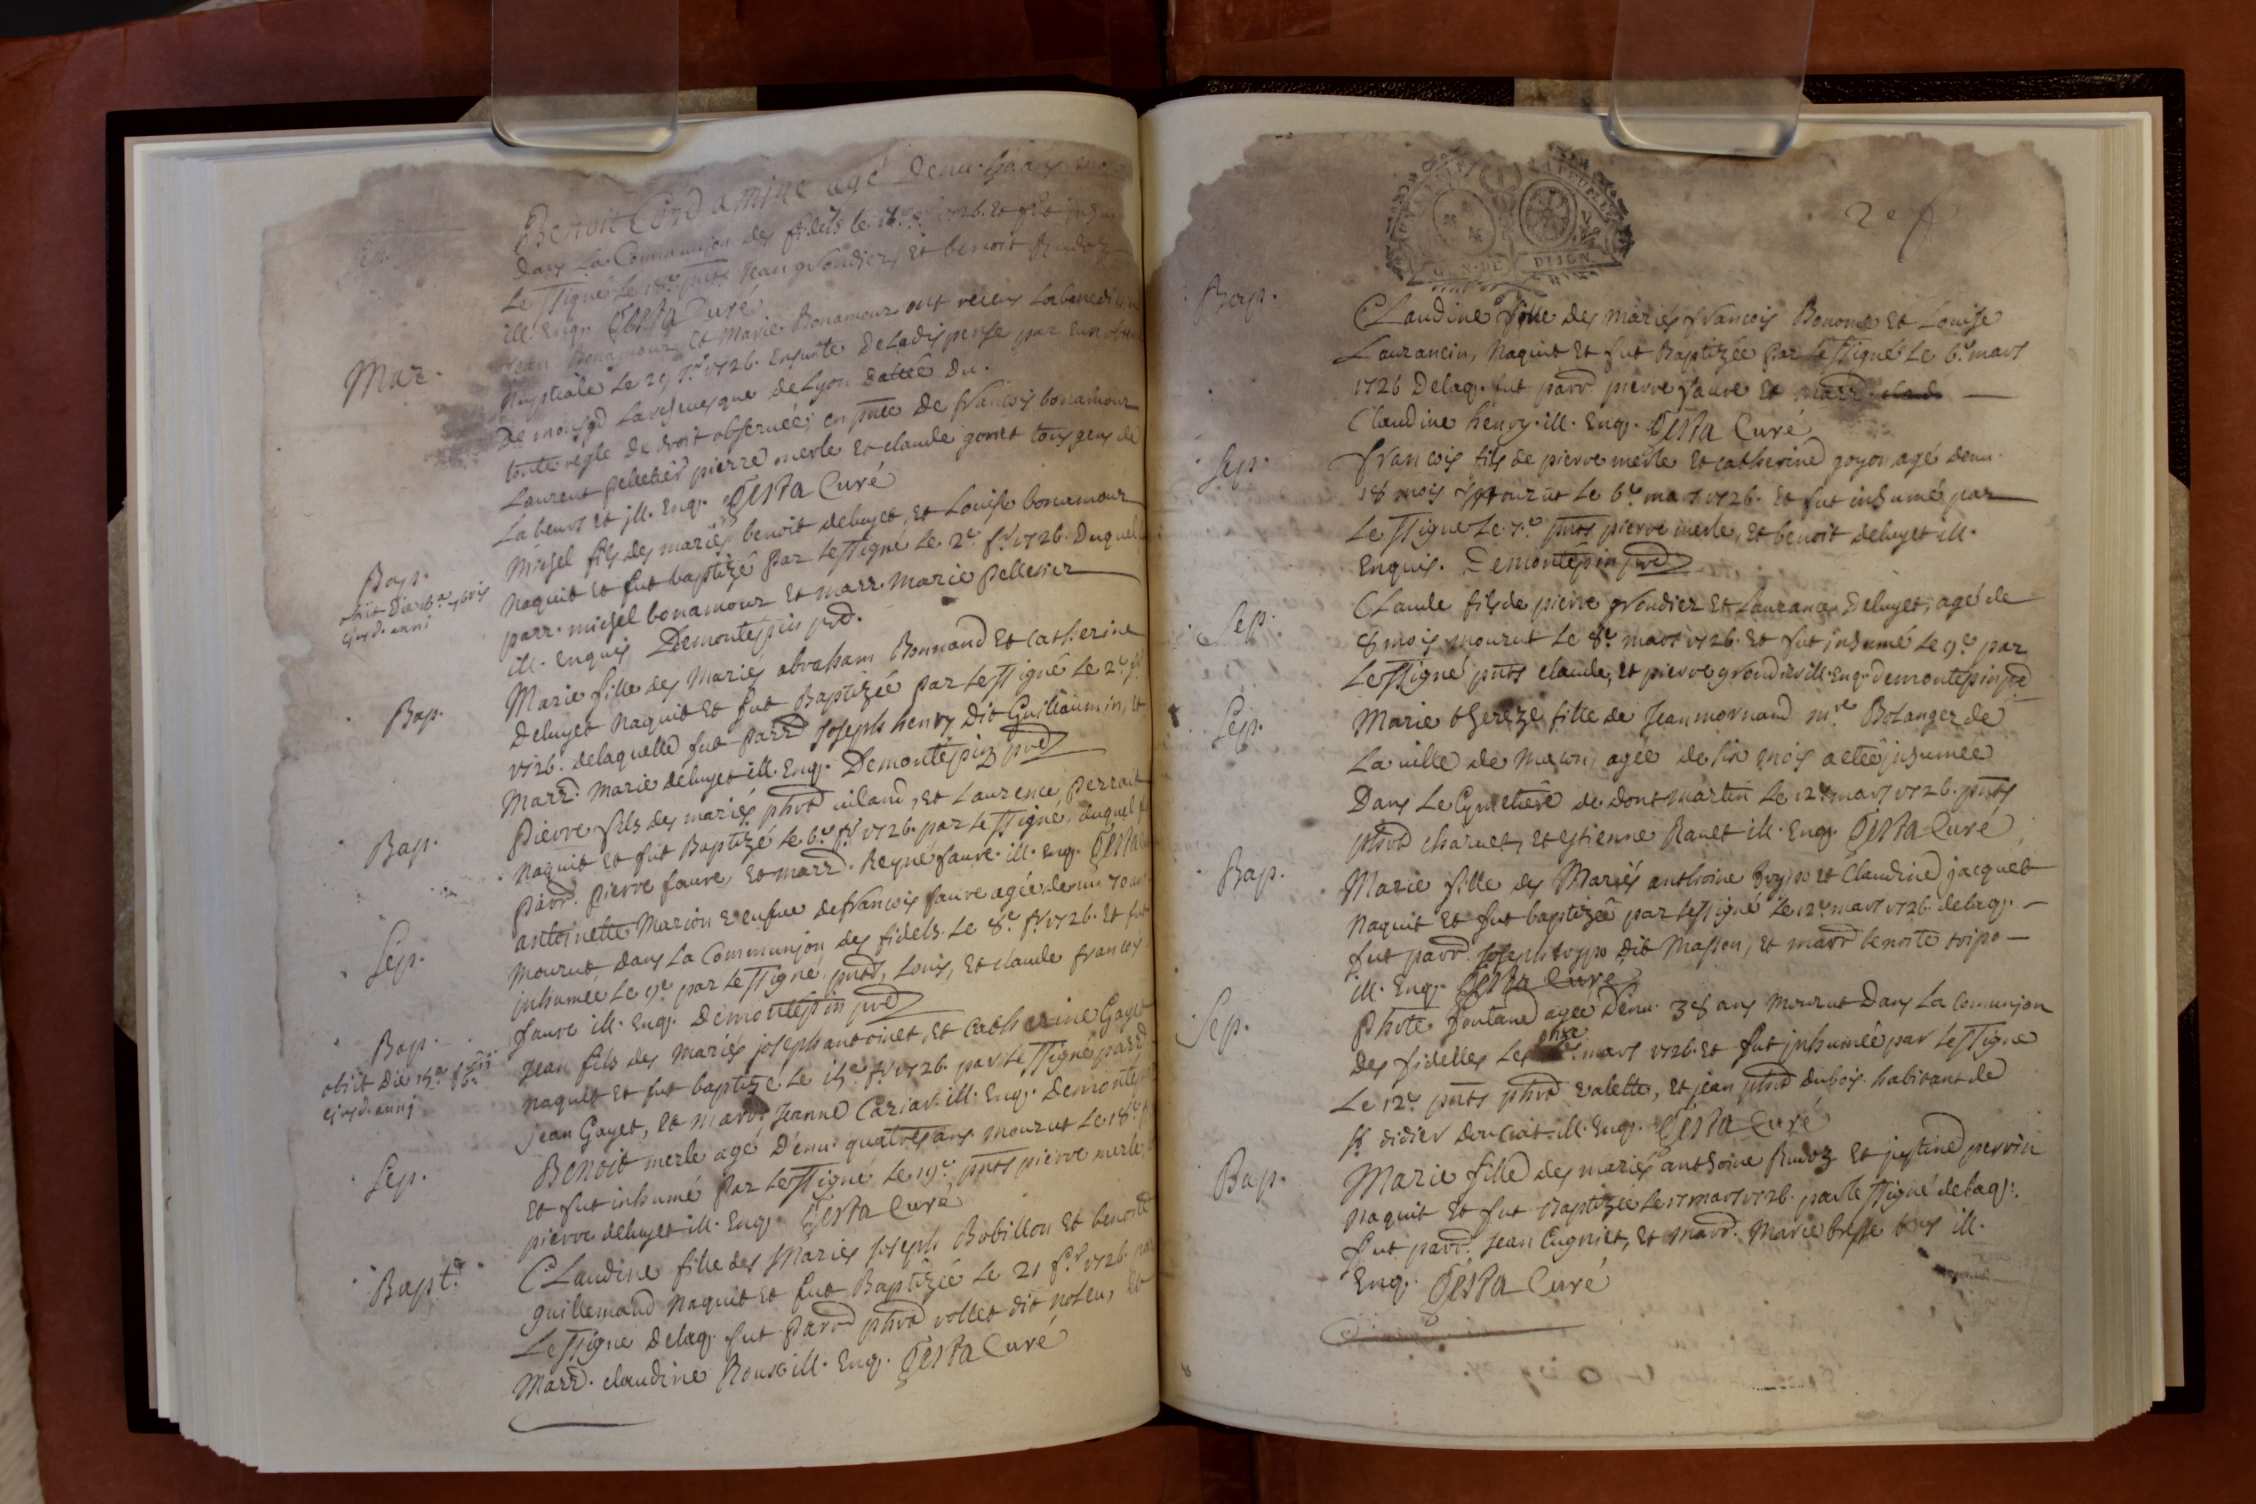 Benoit Condamine agé Denu.
Dans La Communion des fidels le 1726. Et fut
Le ssigné le 18e pnts Jean grondier, et benoit Rudoz
ill. Enq. Testa Curé
Mar.
Jean Bonamour, Et Marie Bonamour ont receus La benedi
Nuptiale Le 29 1726. Ensuite De Ladispense par Eux
De monsgr Larchevesque de Lyon dattée Du.
toute regle De droit observée, en pnce De francois bonamour
Laurent pelletier pierre merle Et claude gonet tous gens de
Labeurs Et ill. Enq. Testa Curé
Bap.
obiit Die 18a
ejusd. anni
Michel fils des mariés benoit debuyet, et Louise bonamour
Naquit et fut baptizé par Lessigné Le 2e fr 1726. Duquel
parr. michel bonamour Et marr. Marie pelletier
ill. Enquis Demontespin prd.
Bap.
Marie fille des Mariés abraham Bonnand Et catherine
Debuyet Naquit Et fut Baptizée par Lessigné Le 2e
1726. delaquelle fut parrd Joseph henry Dit Guillaumin, Et
Marrd. Marie debuyet ill. Enq. Demontespin prd
Bap.
Pierre fils des mariés phrd viland, Et Laurence Perrait
Naquit et fut Baptizé Le 6e fr 1726. par Le ssigné, duquel f
parr. pierre faure, Et marrd. Reyne faure. ill. Enq. Testa
Sep.
antoinette Marion veufue de francois faure agée denu. 70 ans
mourut Dans La Communion des fidels. Le 8e fr 1726. Et fut
inhumée Le 9e par Le ssigné, pnts, Louis, Et claude francois
faure ill. Enq. Demontespin prd
Bap.
obiit Die 15a
ejusd. anni
Jean fils des Mariés joseph antoinet, Et Catherine Gayet
naquit et fut baptizé Le 15e fr 1726. par Le ssigné, parrd
Jean Gayet, Et marr. Jeanne Cariat. ill. Enq. Demontes
Sep.
Benoit merle agé Denu. quatres ans mourut Le 18e
Et fut inhumé par Lessigné Le 19e pnts pierre merle,
pierre debuyet ill. Enq. Testa Curé
Bapt.
Claudine fille des Mariés Joseph Bobillon Et benoite
guillemand Naquit Et fut Baptizée Le 21 fr 1726. par
Lessigné Delaq. fut parrd phrd vollet dit noleu, Et
Marrd. claudine Rous ill. Enq. Testa Curé
GEN. DE DIJON
2e
Bap.
Claudine fille des mariés francois Bonome Et Louise
Laurancin, Naquit Et fut Baptizée par Lessigné Le 6e mars
1726 Delaq. fut parrd pierre faure Et marr. claud
Claudine henry. ill. Enq. Testa Curé
Sep.
francois fils de pierre merle Et catherine goyon agé denu.
18 mois mourut Le 6e mars 1726. Et fut inhumé par
Le ssigné Le 7e pnts pierre merle, Et benoit debuyet ill.
Enquis. Demontespin prd
Sep.
Claude fils de pierre grondier Et Laurance Debuyet, agé de
8 mois mourut Le 8e mars 1726. Et fut inhumé Le 9e par
Lessigné pnts claude, Et pierre grondier ill. Enq. demontespin prd
Sep.
Marie thereze fille de Jean mornand mre Bolanger de
La ville de Macon, agée de six mois a etée inhumée
Dans Le Cymetière de dont martin Le 12e mars 1726. pnts
phrd charuet, Et estienne Rauet ill. Enq. Testa Curé
Bap.
Marie fille des Mariés anthoine Et Claudine jacquet
Naquit Et fut baptizée par Lessigné Le 12e mars 1726. delaq.
fut parrd. Joseph Dit Masson, Et marrd benoite
ill. Enq. Testa Curé
Sep.
Phte fontane agée Denu. 38 ans Mourut Dans La Comunion
Des fidelles Le onze mars 1726. Et fut inhumée par Lessigné
Le 12e pnts phrd valette, Et jean phrd Dubois. habitant de
St didier ill. Enq. Testa Curé
Bap.
Marie fille des mariés anthoine Rudoz Et justine perrin
Naquit Et fut Baptizée Le 17 mars 1726. par Le ssigné delaq.
fut parrd. Jean Cugniet, Et marrd. Marie bresse tous ill.
Enq. Testa Curé